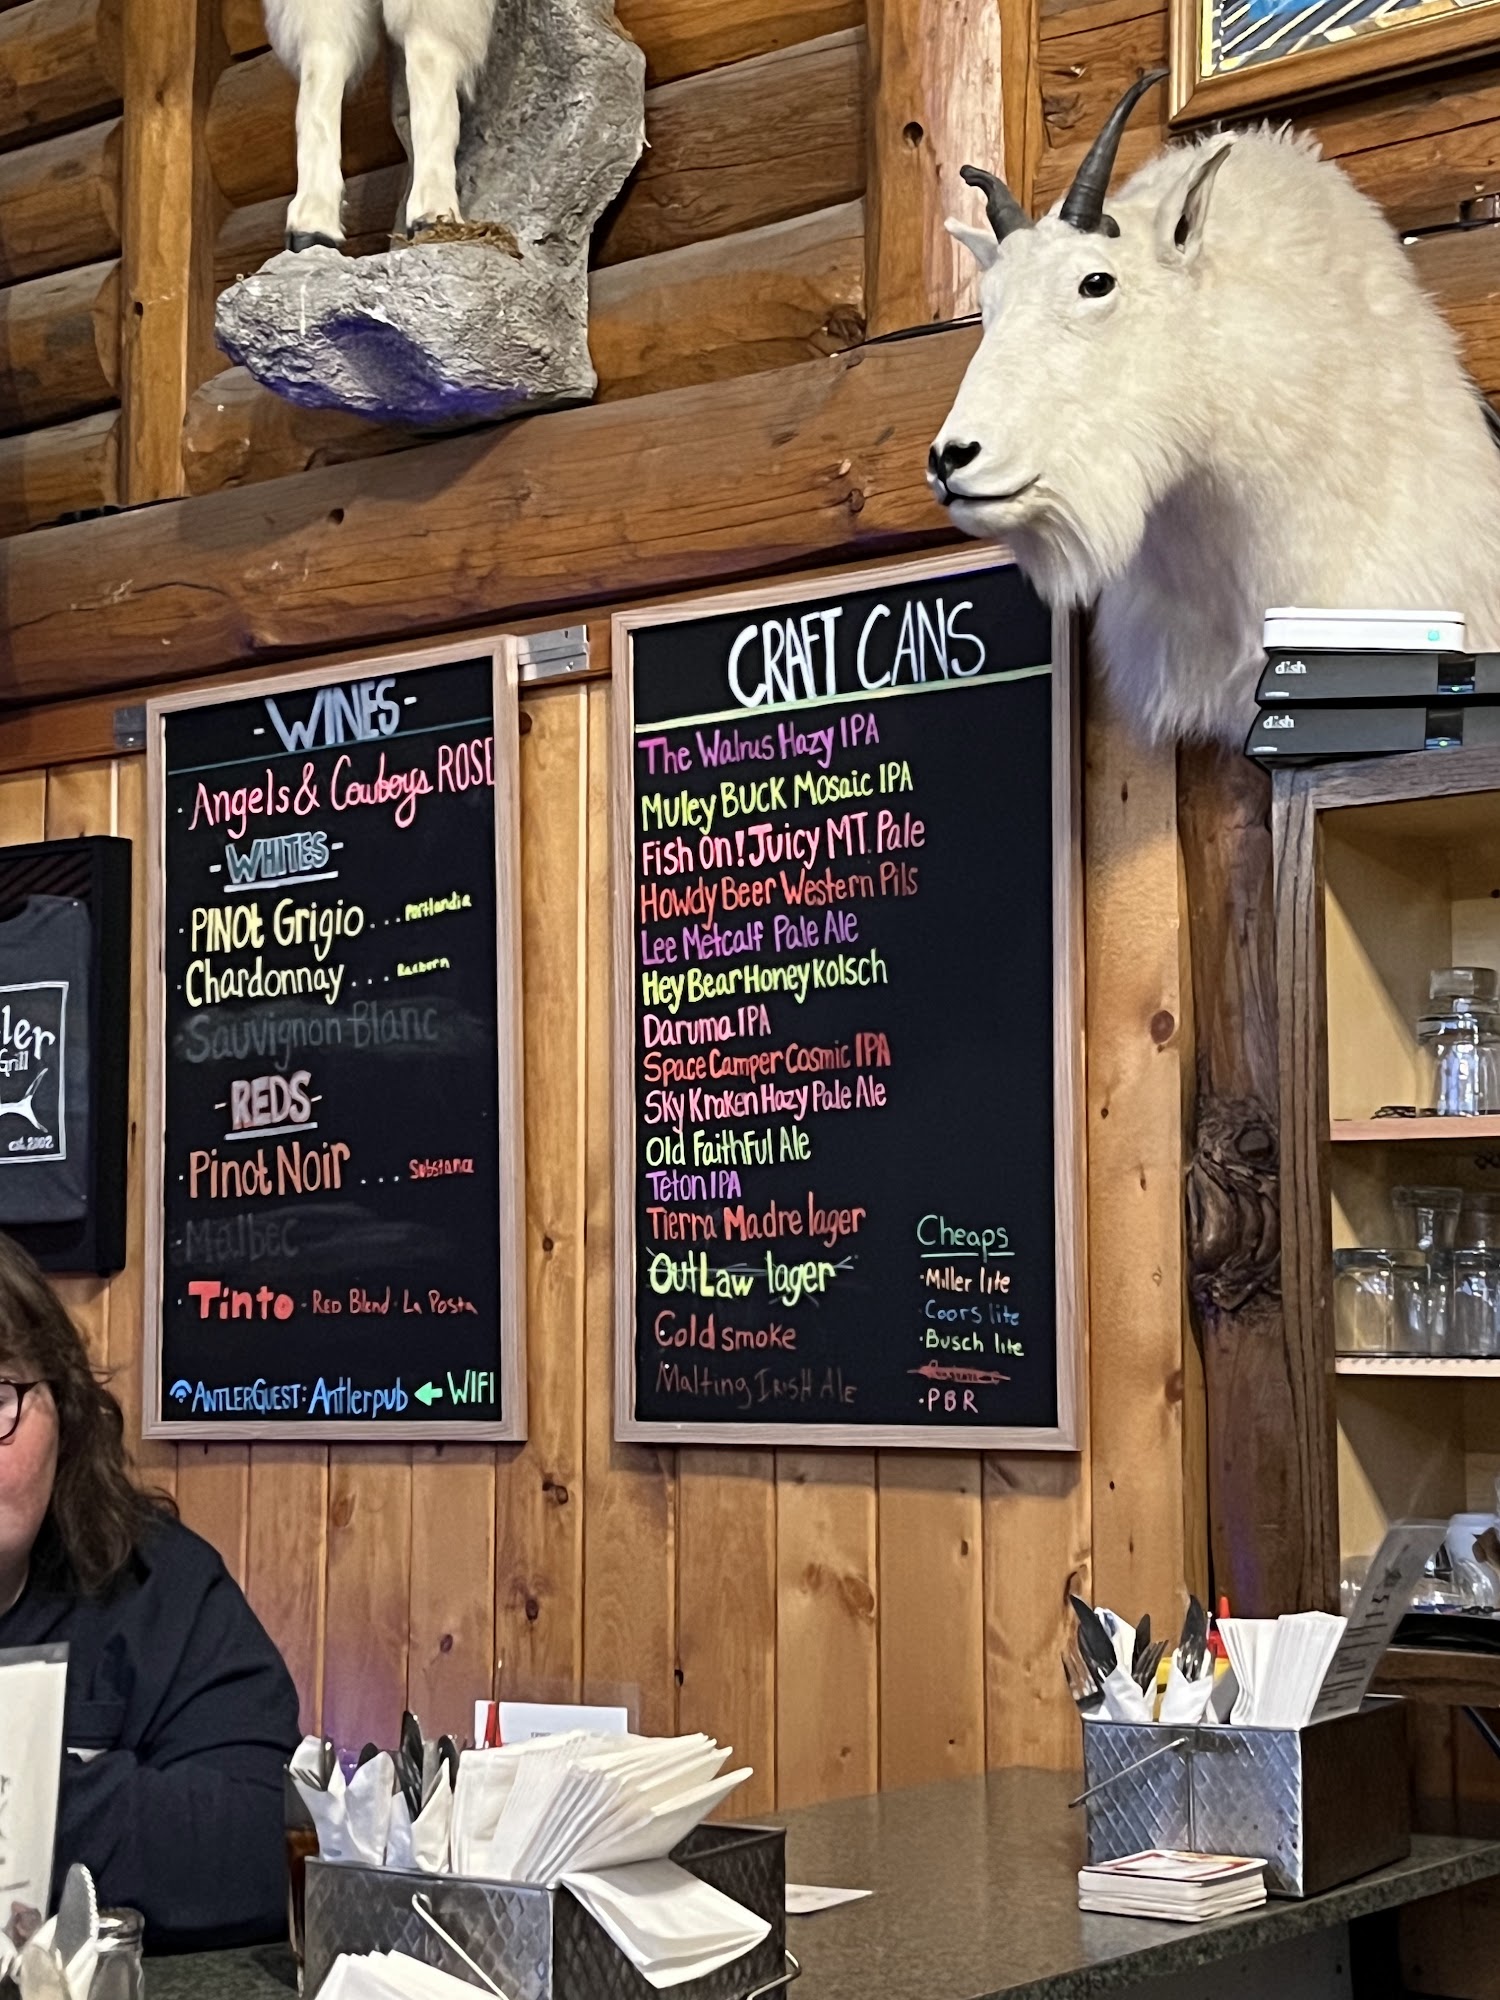 -WINES-
· Angels & Cowboys ROSE
-WHITES-
· PINOt Grigio . . . Portlandia
· Chardonnay . . .
Sauvignon Blanc
-REDS-
· Pinot Noir . . . Substance
· Malbec
· Tinto · RED Blend · La Posta
ANTLERGUEST: Antlerpub ← WIFI
CRAFT CANS
The Walrus Hazy IPA
Muley BUCK Mosaic IPA
Fish On! Juicy MT. Pale
Howdy Beer Western Pils
Lee Metcalf Pale Ale
Hey Bear Honey Kolsch
Daruma IPA
Space Camper Cosmic IPA
Sky Kraken Hazy Pale Ale
Old FaithFul Ale
Teton IPA
Tierra Madre lager
OutLaw lager
Cold smoke
Malting IRISH Ale
Cheaps
· Miller lite
· Coors lite
· Busch lite
· PBR
dish
dish
ler
Grill
est. 2002